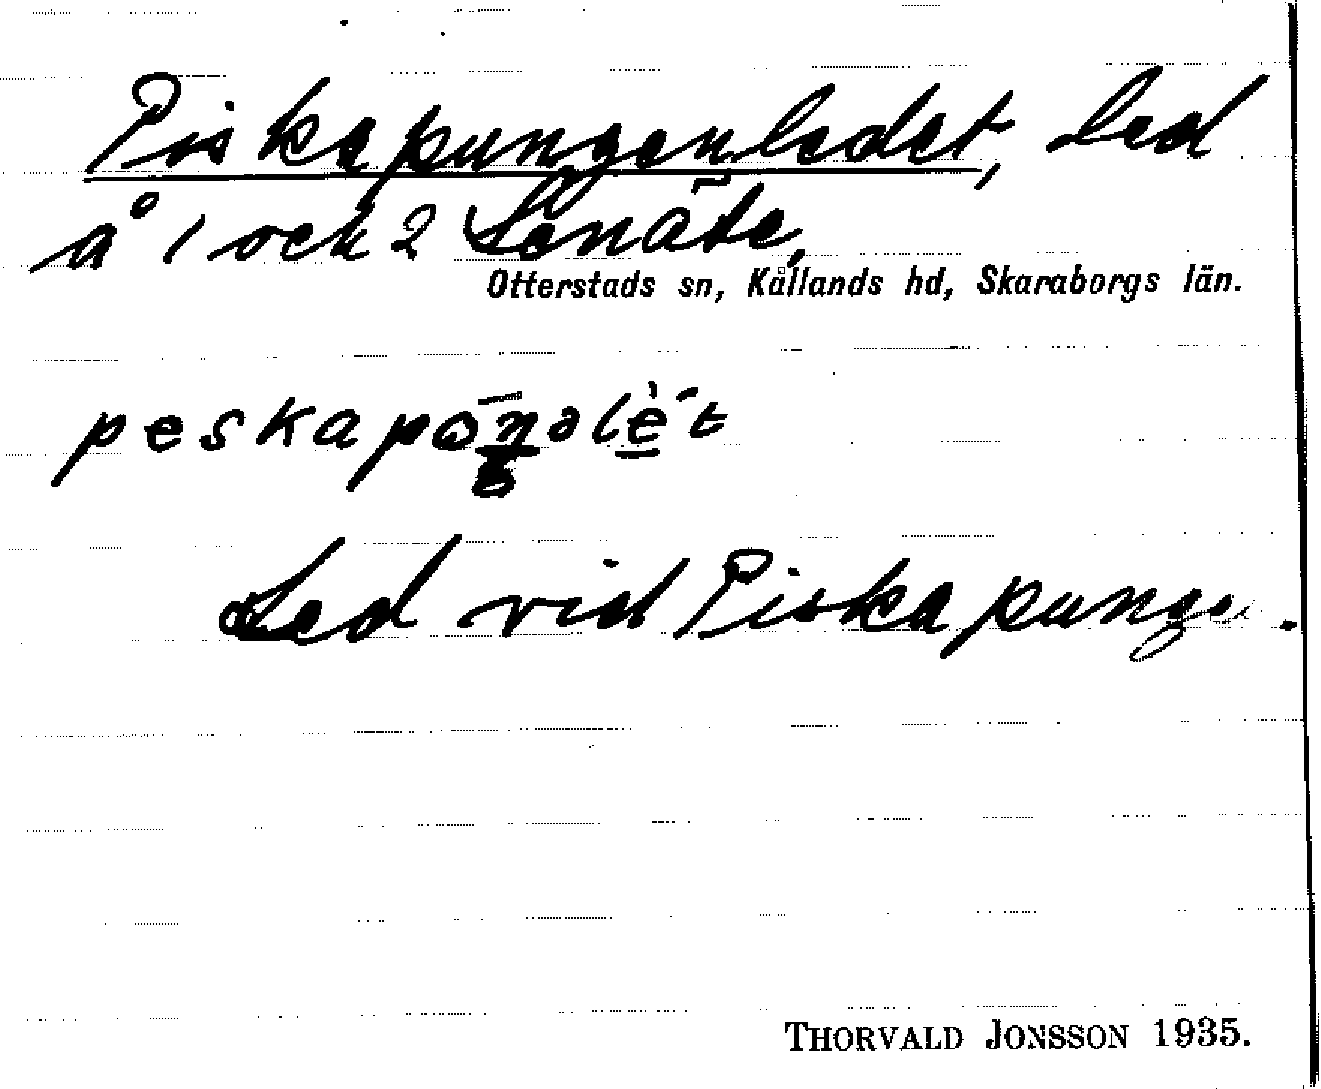 Piskapungenledet, Led
å 1 och 2 Senäte,
Otterstads sn, Kållands hd, Skaraborgs län.
Led vid Piskapungen.
THORVALD JONSSON 1935.